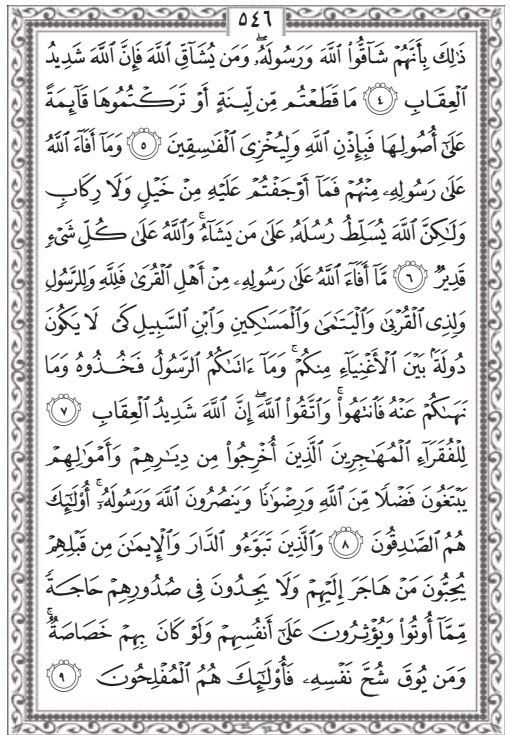 ٥٤٦
ذَٰلِكَ بِأَنَّهُمْ شَآقُّوا۟ ٱللَّهَ وَرَسُولَهُۥ ۖ وَمَن يُشَآقِّ ٱللَّهَ فَإِنَّ ٱللَّهَ شَدِيدُ
ٱلْعِقَابِ ٤ مَا قَطَعْتُم مِّن لِّينَةٍ أَوْ تَرَكْتُمُوهَا قَآئِمَةً
عَلَىٰٓ أُصُولِهَا فَبِإِذْنِ ٱللَّهِ وَلِيُخْزِىَ ٱلْفَـٰسِقِينَ ٥ وَمَآ أَفَآءَ ٱللَّهُ
عَلَىٰ رَسُولِهِۦ مِنْهُمْ فَمَآ أَوْجَفْتُمْ عَلَيْهِ مِنْ خَيْلٍ وَلَا رِكَابٍ
وَلَـٰكِنَّ ٱللَّهَ يُسَلِّطُ رُسُلَهُۥ عَلَىٰ مَن يَشَآءُ ۚ وَٱللَّهُ عَلَىٰ كُلِّ شَىْءٍ
قَدِيرٌ ٦ مَّآ أَفَآءَ ٱللَّهُ عَلَىٰ رَسُولِهِۦ مِنْ أَهْلِ ٱلْقُرَىٰ فَلِلَّهِ وَلِلرَّسُولِ
وَلِذِى ٱلْقُرْبَىٰ وَٱلْيَتَـٰمَىٰ وَٱلْمَسَـٰكِينِ وَٱبْنِ ٱلسَّبِيلِ كَىْ لَا يَكُونَ
دُولَةًۢ بَيْنَ ٱلْأَغْنِيَآءِ مِنكُمْ ۚ وَمَآ ءَاتَىٰكُمُ ٱلرَّسُولُ فَخُذُوهُ وَمَا
نَهَىٰكُمْ عَنْهُ فَٱنتَهُوا۟ ۚ وَٱتَّقُوا۟ ٱللَّهَ ۖ إِنَّ ٱللَّهَ شَدِيدُ ٱلْعِقَابِ ٧
لِلْفُقَرَآءِ ٱلْمُهَـٰجِرِينَ ٱلَّذِينَ أُخْرِجُوا۟ مِن دِيَـٰرِهِمْ وَأَمْوَٰلِهِمْ
يَبْتَغُونَ فَضْلًا مِّنَ ٱللَّهِ وَرِضْوَٰنًا وَيَنصُرُونَ ٱللَّهَ وَرَسُولَهُۥٓ ۚ أُو۟لَـٰٓئِكَ
هُمُ ٱلصَّـٰدِقُونَ ٨ وَٱلَّذِينَ تَبَوَّءُو ٱلدَّارَ وَٱلْإِيمَـٰنَ مِن قَبْلِهِمْ
يُحِبُّونَ مَنْ هَاجَرَ إِلَيْهِمْ وَلَا يَجِدُونَ فِى صُدُورِهِمْ حَاجَةً
مِّمَّآ أُوتُوا۟ وَيُؤْثِرُونَ عَلَىٰٓ أَنفُسِهِمْ وَلَوْ كَانَ بِهِمْ خَصَاصَةٌ ۚ
وَمَن يُوقَ شُحَّ نَفْسِهِۦ فَأُو۟لَـٰٓئِكَ هُمُ ٱلْمُفْلِحُونَ ٩